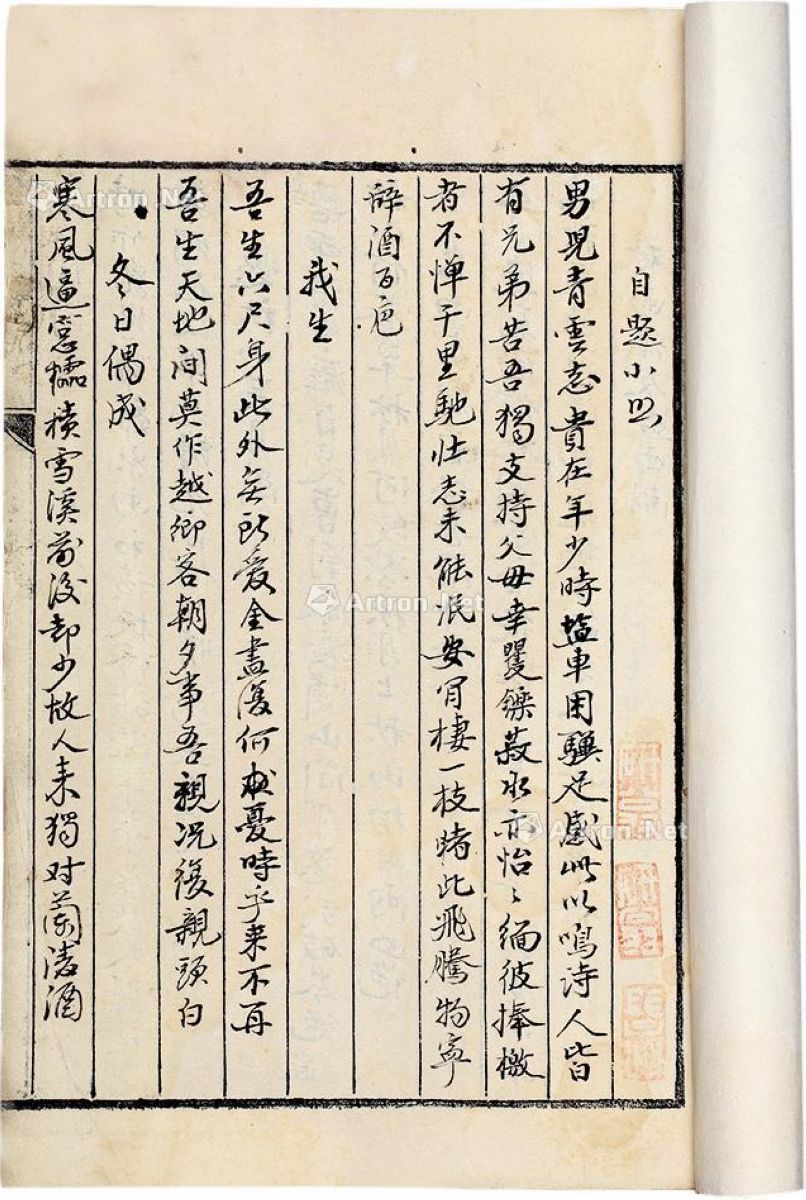 自題小照
男兒青雲志貴在年少時鹽車困驥足感此以鳴詩人皆
有兄弟苦吾獨支持父母幸矍鑠菽水亦怡〻緬彼捧檄
者不憚千里馳壯志未能泯安肯棲一枝睹此飛騰物寧
辭酒百卮
我生
吾生六尺身此外無所愛金盡復何憂時乎来不再
吾生天地间莫作越鄉客朝夕事吾親况復親頭白
冬日偶成
寒風逼窓櫺積雪溪前没却少故人来獨对蘭陵酒
Artron.Net